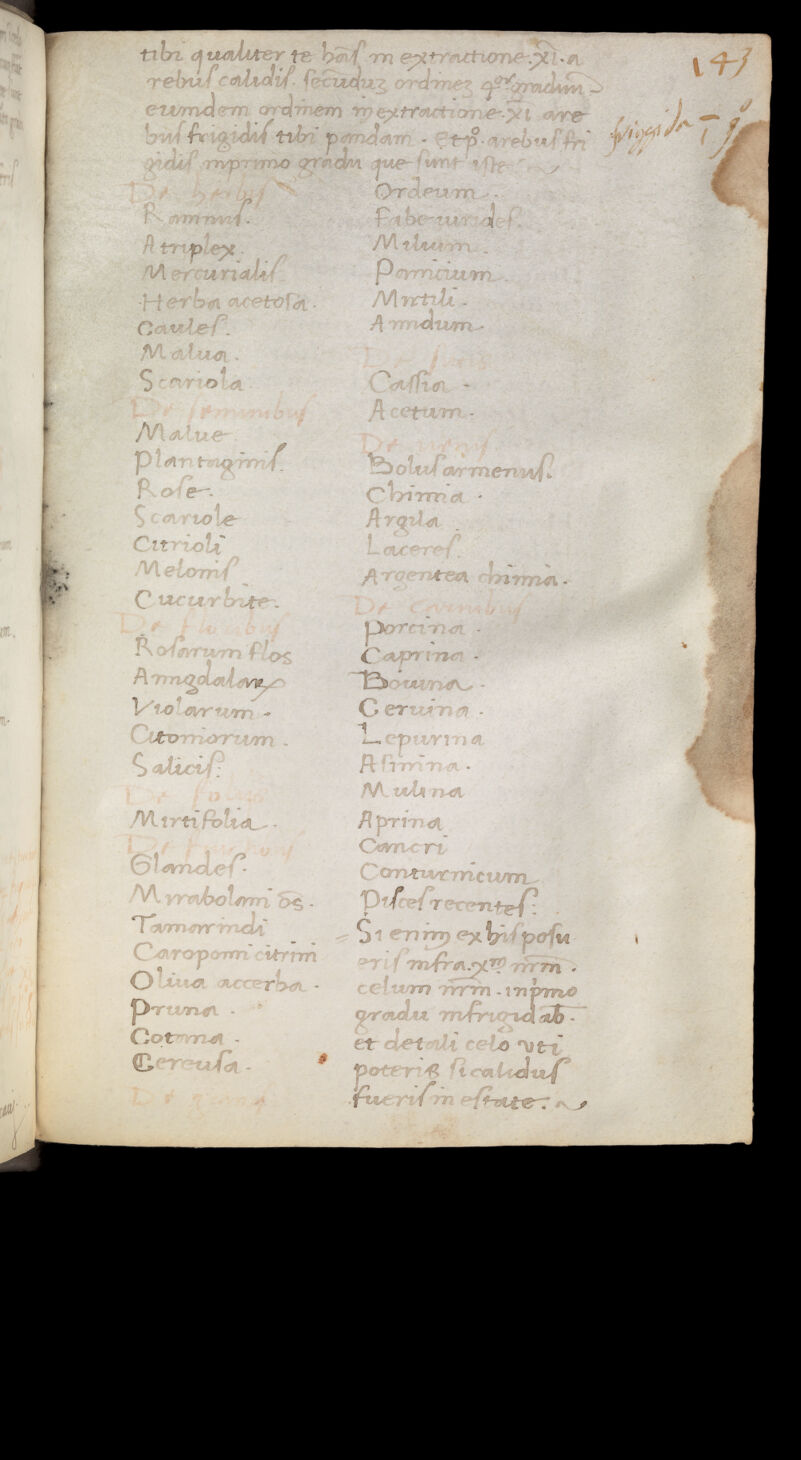 143
tibi qualiter te hãs in extractione .xĩ. a
rebus calidis. secũduz ordinez q͛or graduũ
eumdem ordinem in extractione .xĩ are
bus frigidis tibi pandam. Et pº. a rebus fri
gidis in primo gradu que sunt iste
frigida ī gº
De herbis
Ramnus.
Atriplex.
Mercurialis.
Herba acetosa.
Caules.
Malua.
Scariola
De seminibus
Malue
Plantaginis.
Rose.
Scariole
Citrioli
Melonis
Cucurbite.
De floribus
Rosarum flos
Amigdalaꝝ
Violarum.
Citoniorum.
Salicis:
De
Mirti folia.
De fructibus
Glandes.
Mirabolani õs.
Tamarindi
Caropomi citrini
Oliua accerba.
Pruna.
Cotana.
Cereusa.
De granis
Ordeum.
Fabe uirides.
Milium.
Panicium.
Mirtili.
Amidum
De
Cassia.
Acetum.
De
Bolus armenus.
Chimia.
Argila
Laceres.
Argentea chimia.
De carnibus
Porcina.
Caprina.
Bouina.
Ceruina.
Lepurina
Asinina.
Mulina
Aprina
Cancri
Conturnicum
Pisces recentes:
Si enim ex his posu
eris infra .xm nr̃m.
celum nr̃m. in pĩmo
gradu infrigidab̃.
et de tali celo vti
poteris si calidus
fueris in estate.